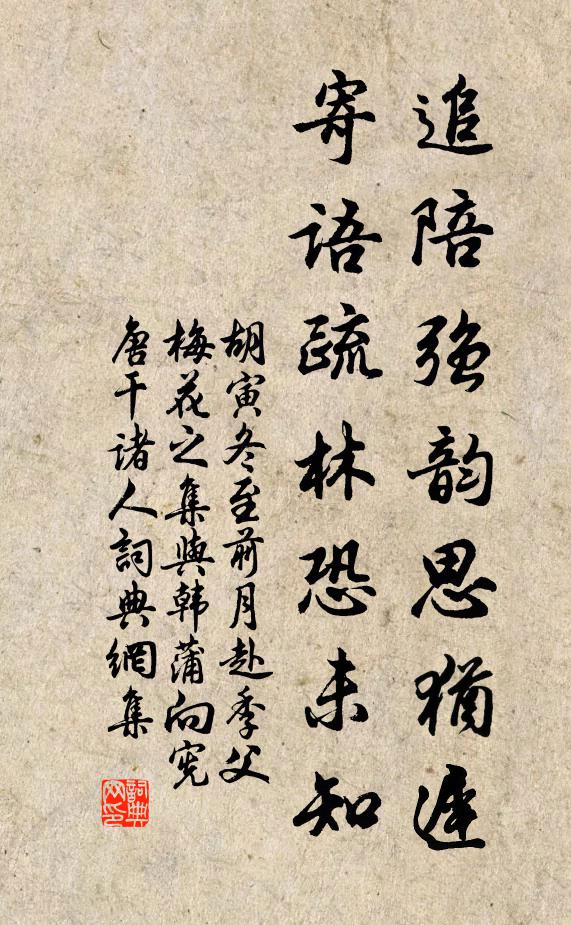 追陪强韵思犹迟
寄语疏林恐未知
胡寅冬至前月赴季父
梅花之集與韩蒲向宪
唐干诸人詞典網集
詞典网印